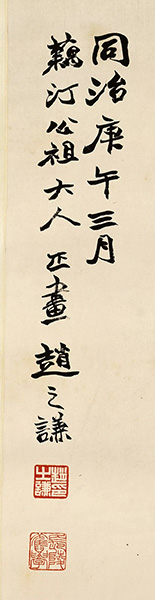 同治庚午三月
藕汀公祖大人正畫趙之謙
趙之謙印